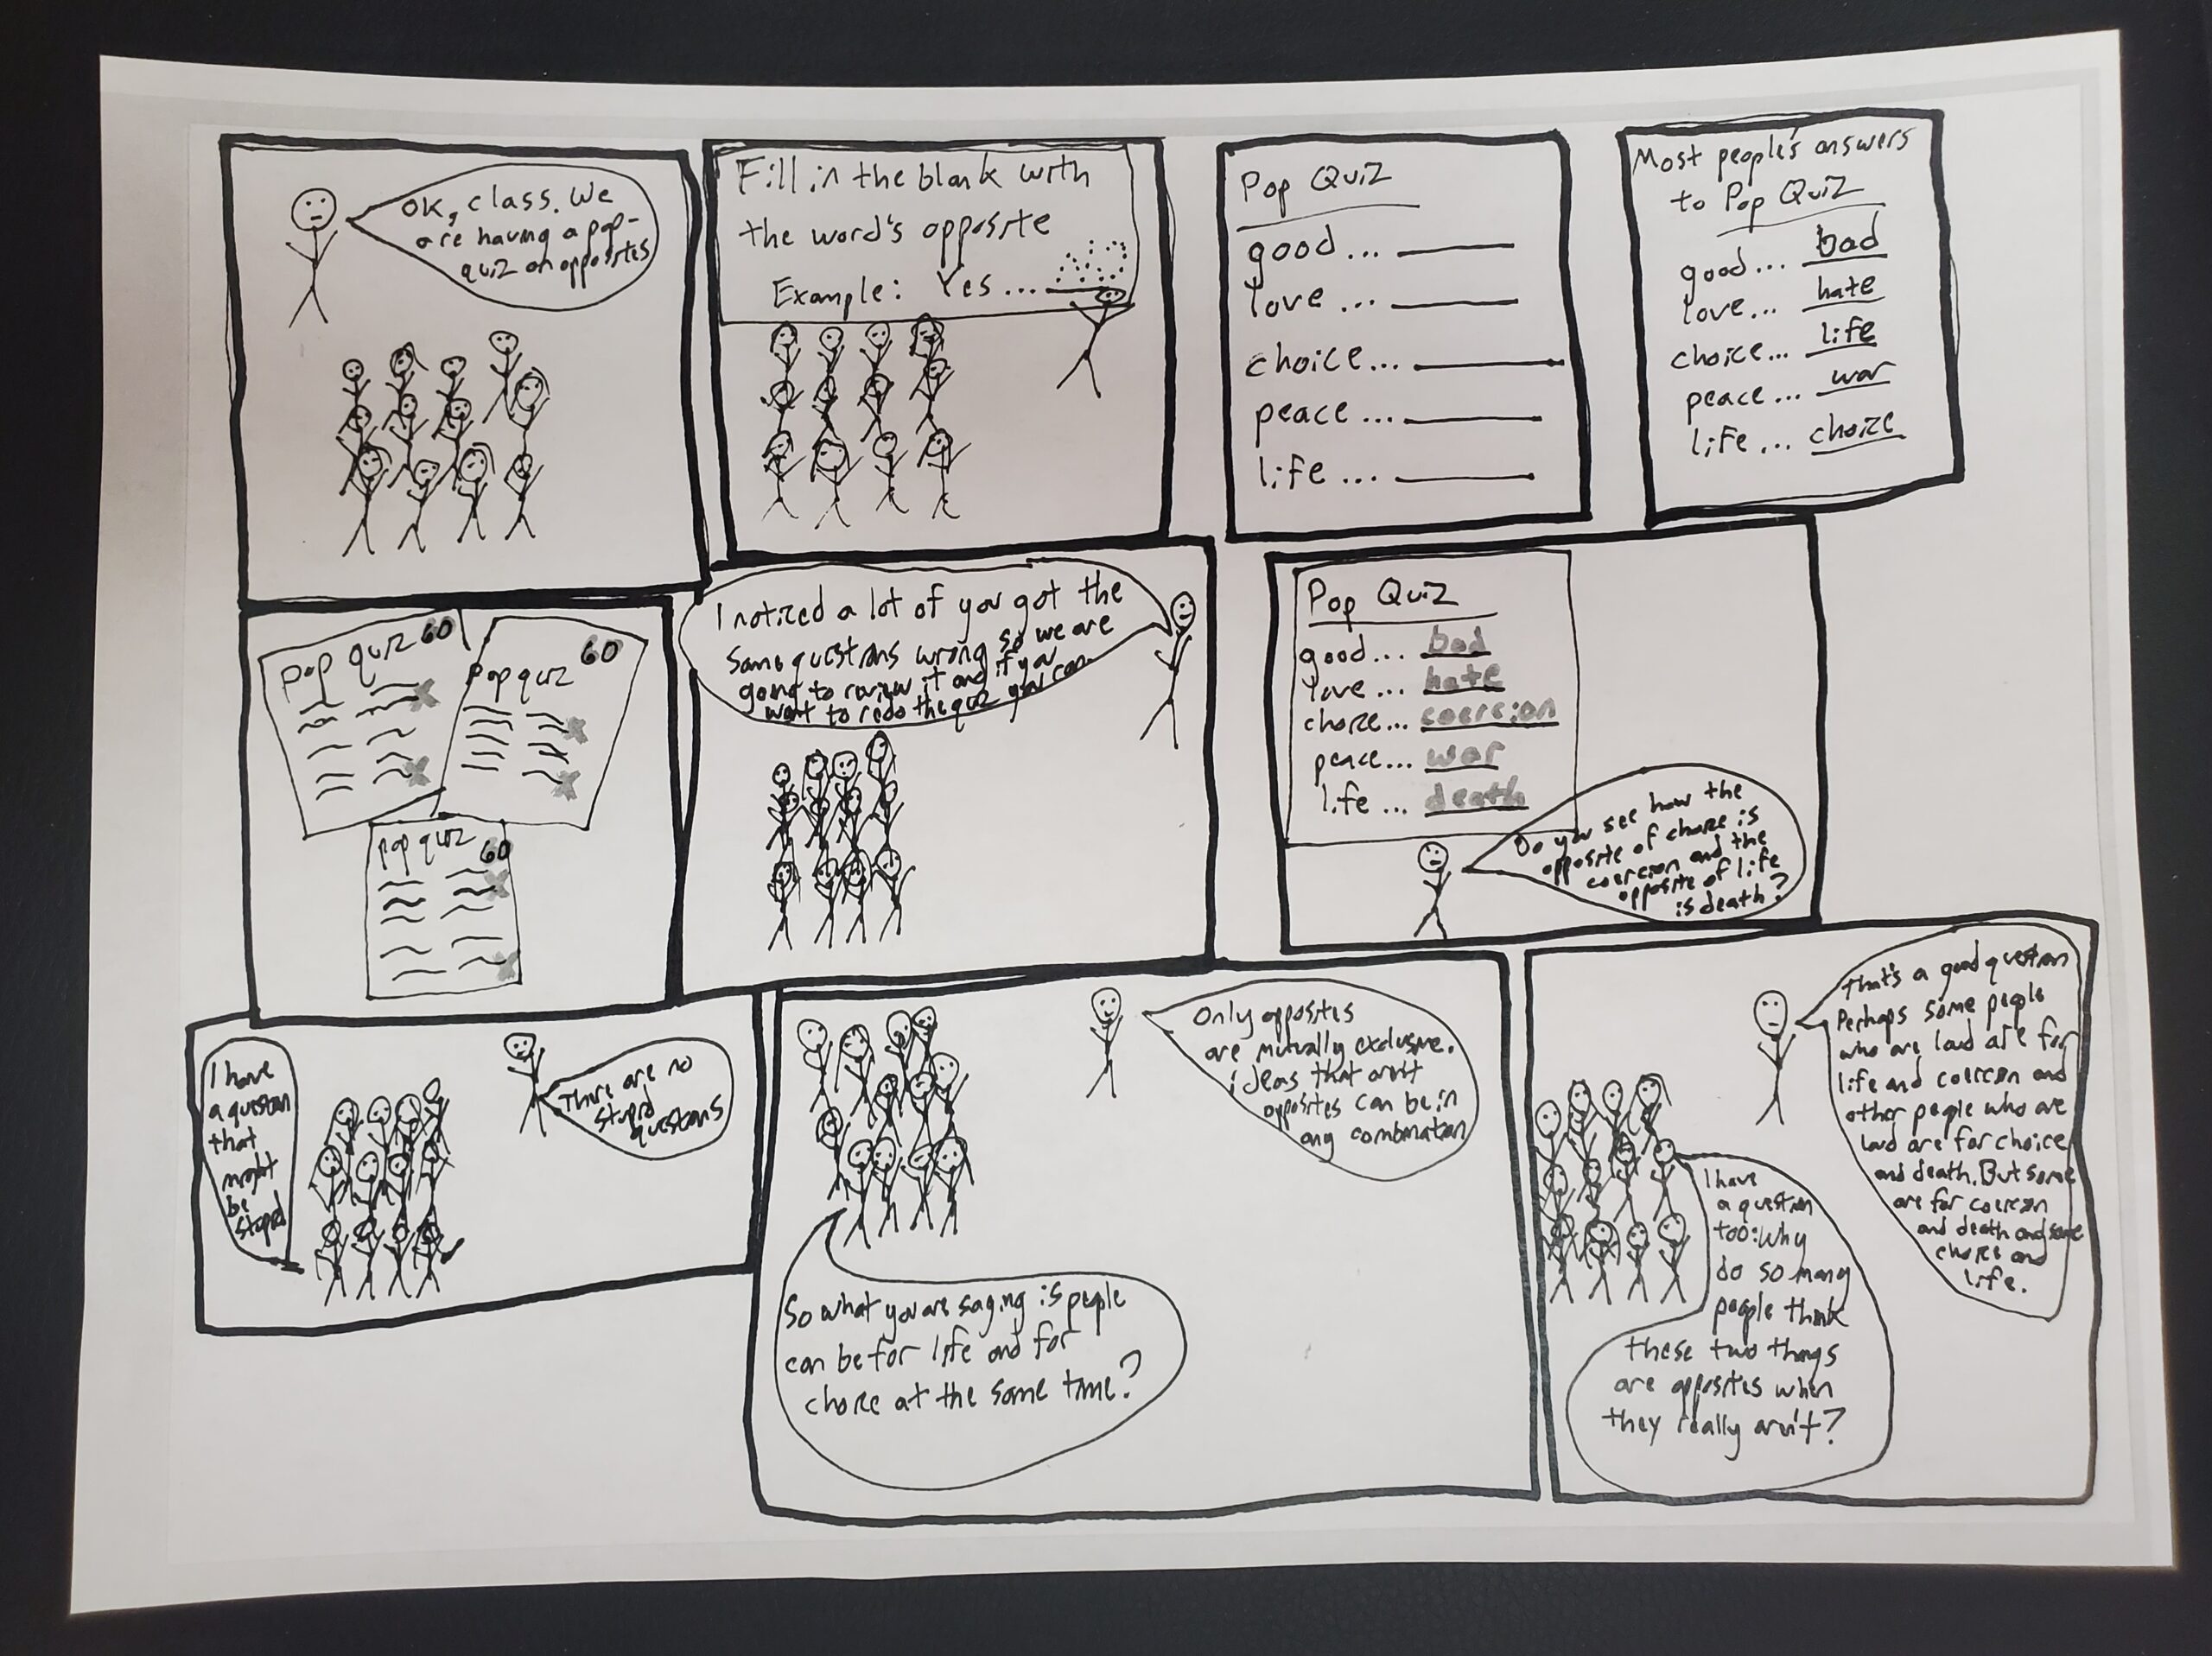 OK, class. We
are having a pop-
quiz on opposites
Fill in the blank with
the word's opposite
Example: Yes ...
Pop Quiz
good ...
love ...
choice ...
peace ...
life ...
Most people's answers
to Pop Quiz
good ... bad
love ... hate
choice ... life
peace ... war
life ... choice
pop quiz 60
pop quiz 60
pop quiz 60
I noticed a lot of you got the
same questions wrong so we are
going to review it and if you
want to redo the quiz you can
Pop Quiz
good ... bad
love ... hate
choice ... coercion
peace ... war
life ... death
Do you see how the
opposite of choice is
coercion and the
opposite of life
is death?
I have
a question
that
might
be
stupid
There are no
stupid
questions
Only opposites
are mutually exclusive.
ideas that arn't
opposites can be in
any combination
So what you are saying is people
can be for life and for
choice at the same time?
That's a good question
Perhaps some people
who are loud are for
life and coercion and
other people who are
loud are for choice
and death. But some
are for coercion
and death and some
choice and
life.
I have
a question
too: Why
do so many
people think
these two things
are opposites when
they really arn't?